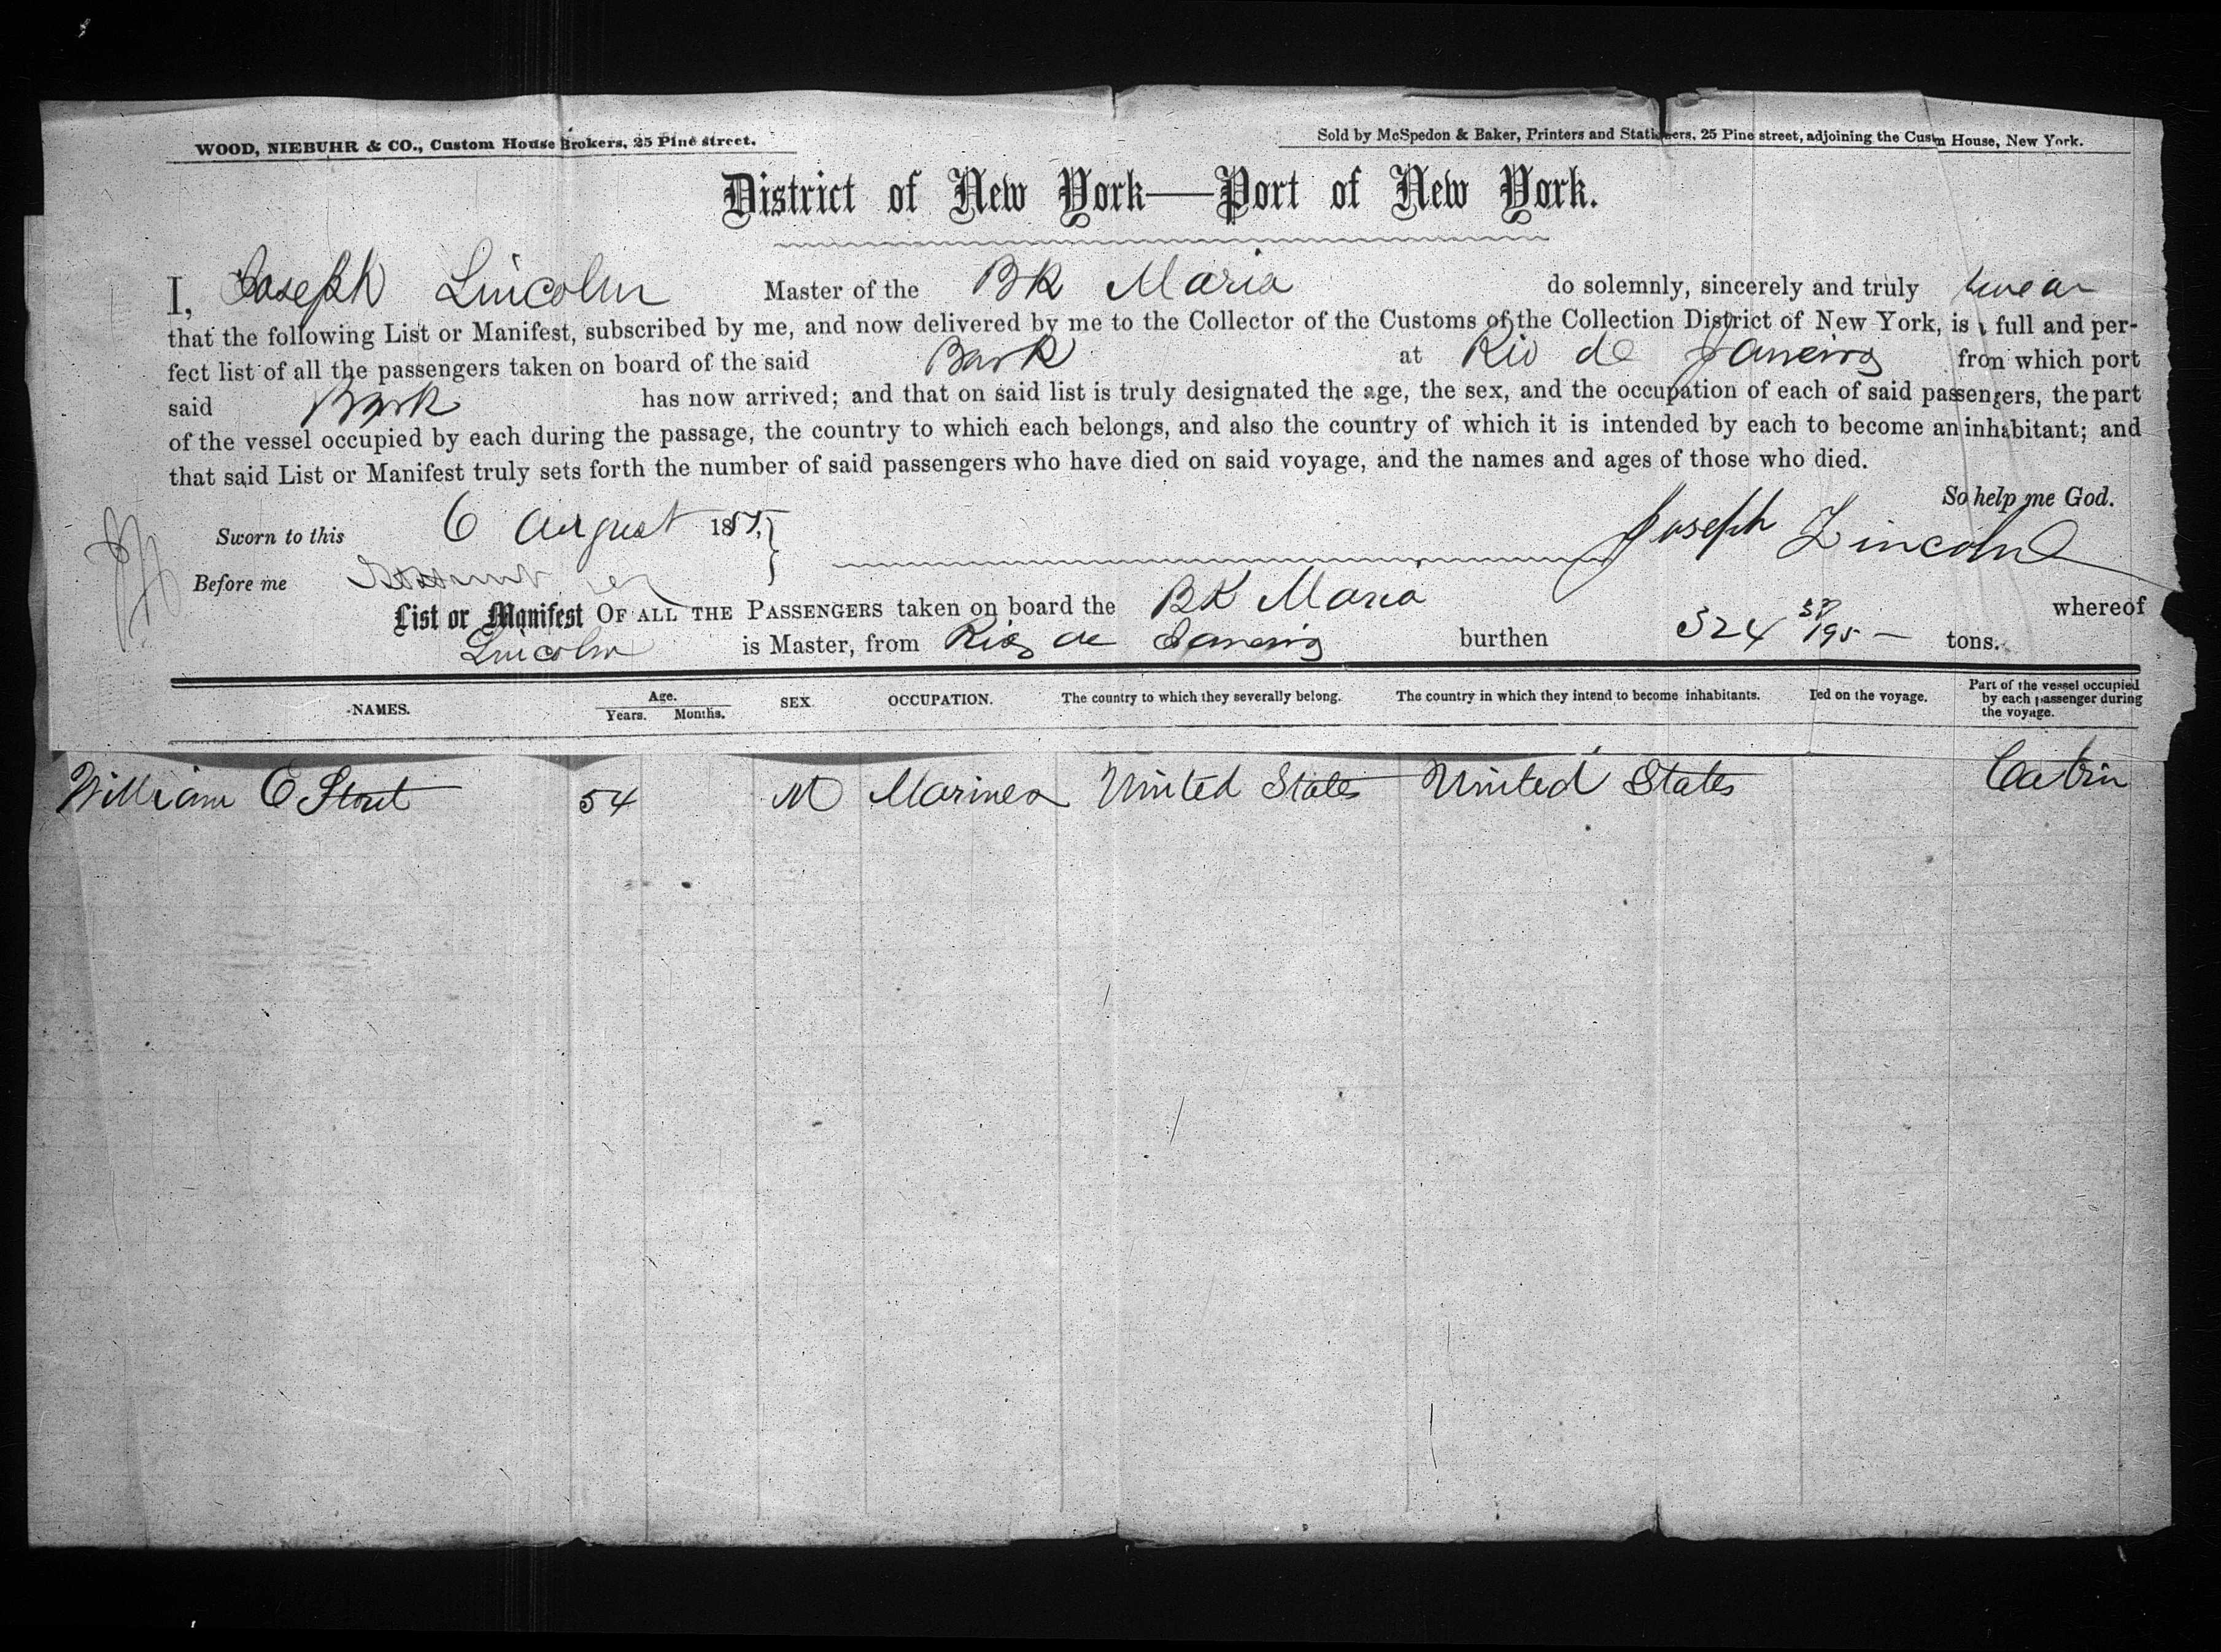 WOOD, NIEBUHR & CO., Custom House Brokers, 25 Pine street.
Sold by McSpedon & Baker, Printers and Stationers, 25 Pine street, adjoining the Custm House, New York.
District of New York—Port of New York.
I, Joseph Lincoln Master of the Bk Maria do solemnly, sincerely and truly swear
that the following List or Manifest, subscribed by me, and now delivered by me to the Collector of the Customs of the Collection District of New York, is a full and per-
fect list of all the passengers taken on board of the said Bark at Rio de Janeiro from which port
said Bark has now arrived; and that on said list is truly designated the age, the sex, and the occupation of each of said passengers, the part
of the vessel occupied by each during the passage, the country to which each belongs, and also the country of which it is intended by each to become an inhabitant; and
that said List or Manifest truly sets forth the number of said passengers who have died on said voyage, and the names and ages of those who died.
So help me God.
Sworn to this 6 August 1855, Joseph Lincoln
Before me
List or Manifest OF ALL THE PASSENGERS taken on board the Bk Maria whereof
Lincoln is Master, from Rio de Janeiro burthen 324 /95 — tons.
NAMES. Age. Years. Months. SEX. OCCUPATION. The country to which they severally belong. The country in which they intend to become inhabitants. Died on the voyage. Part of the vessel occupied by each passenger during the voyage.
William E Stout 54 M Mariner United States United States Cabin